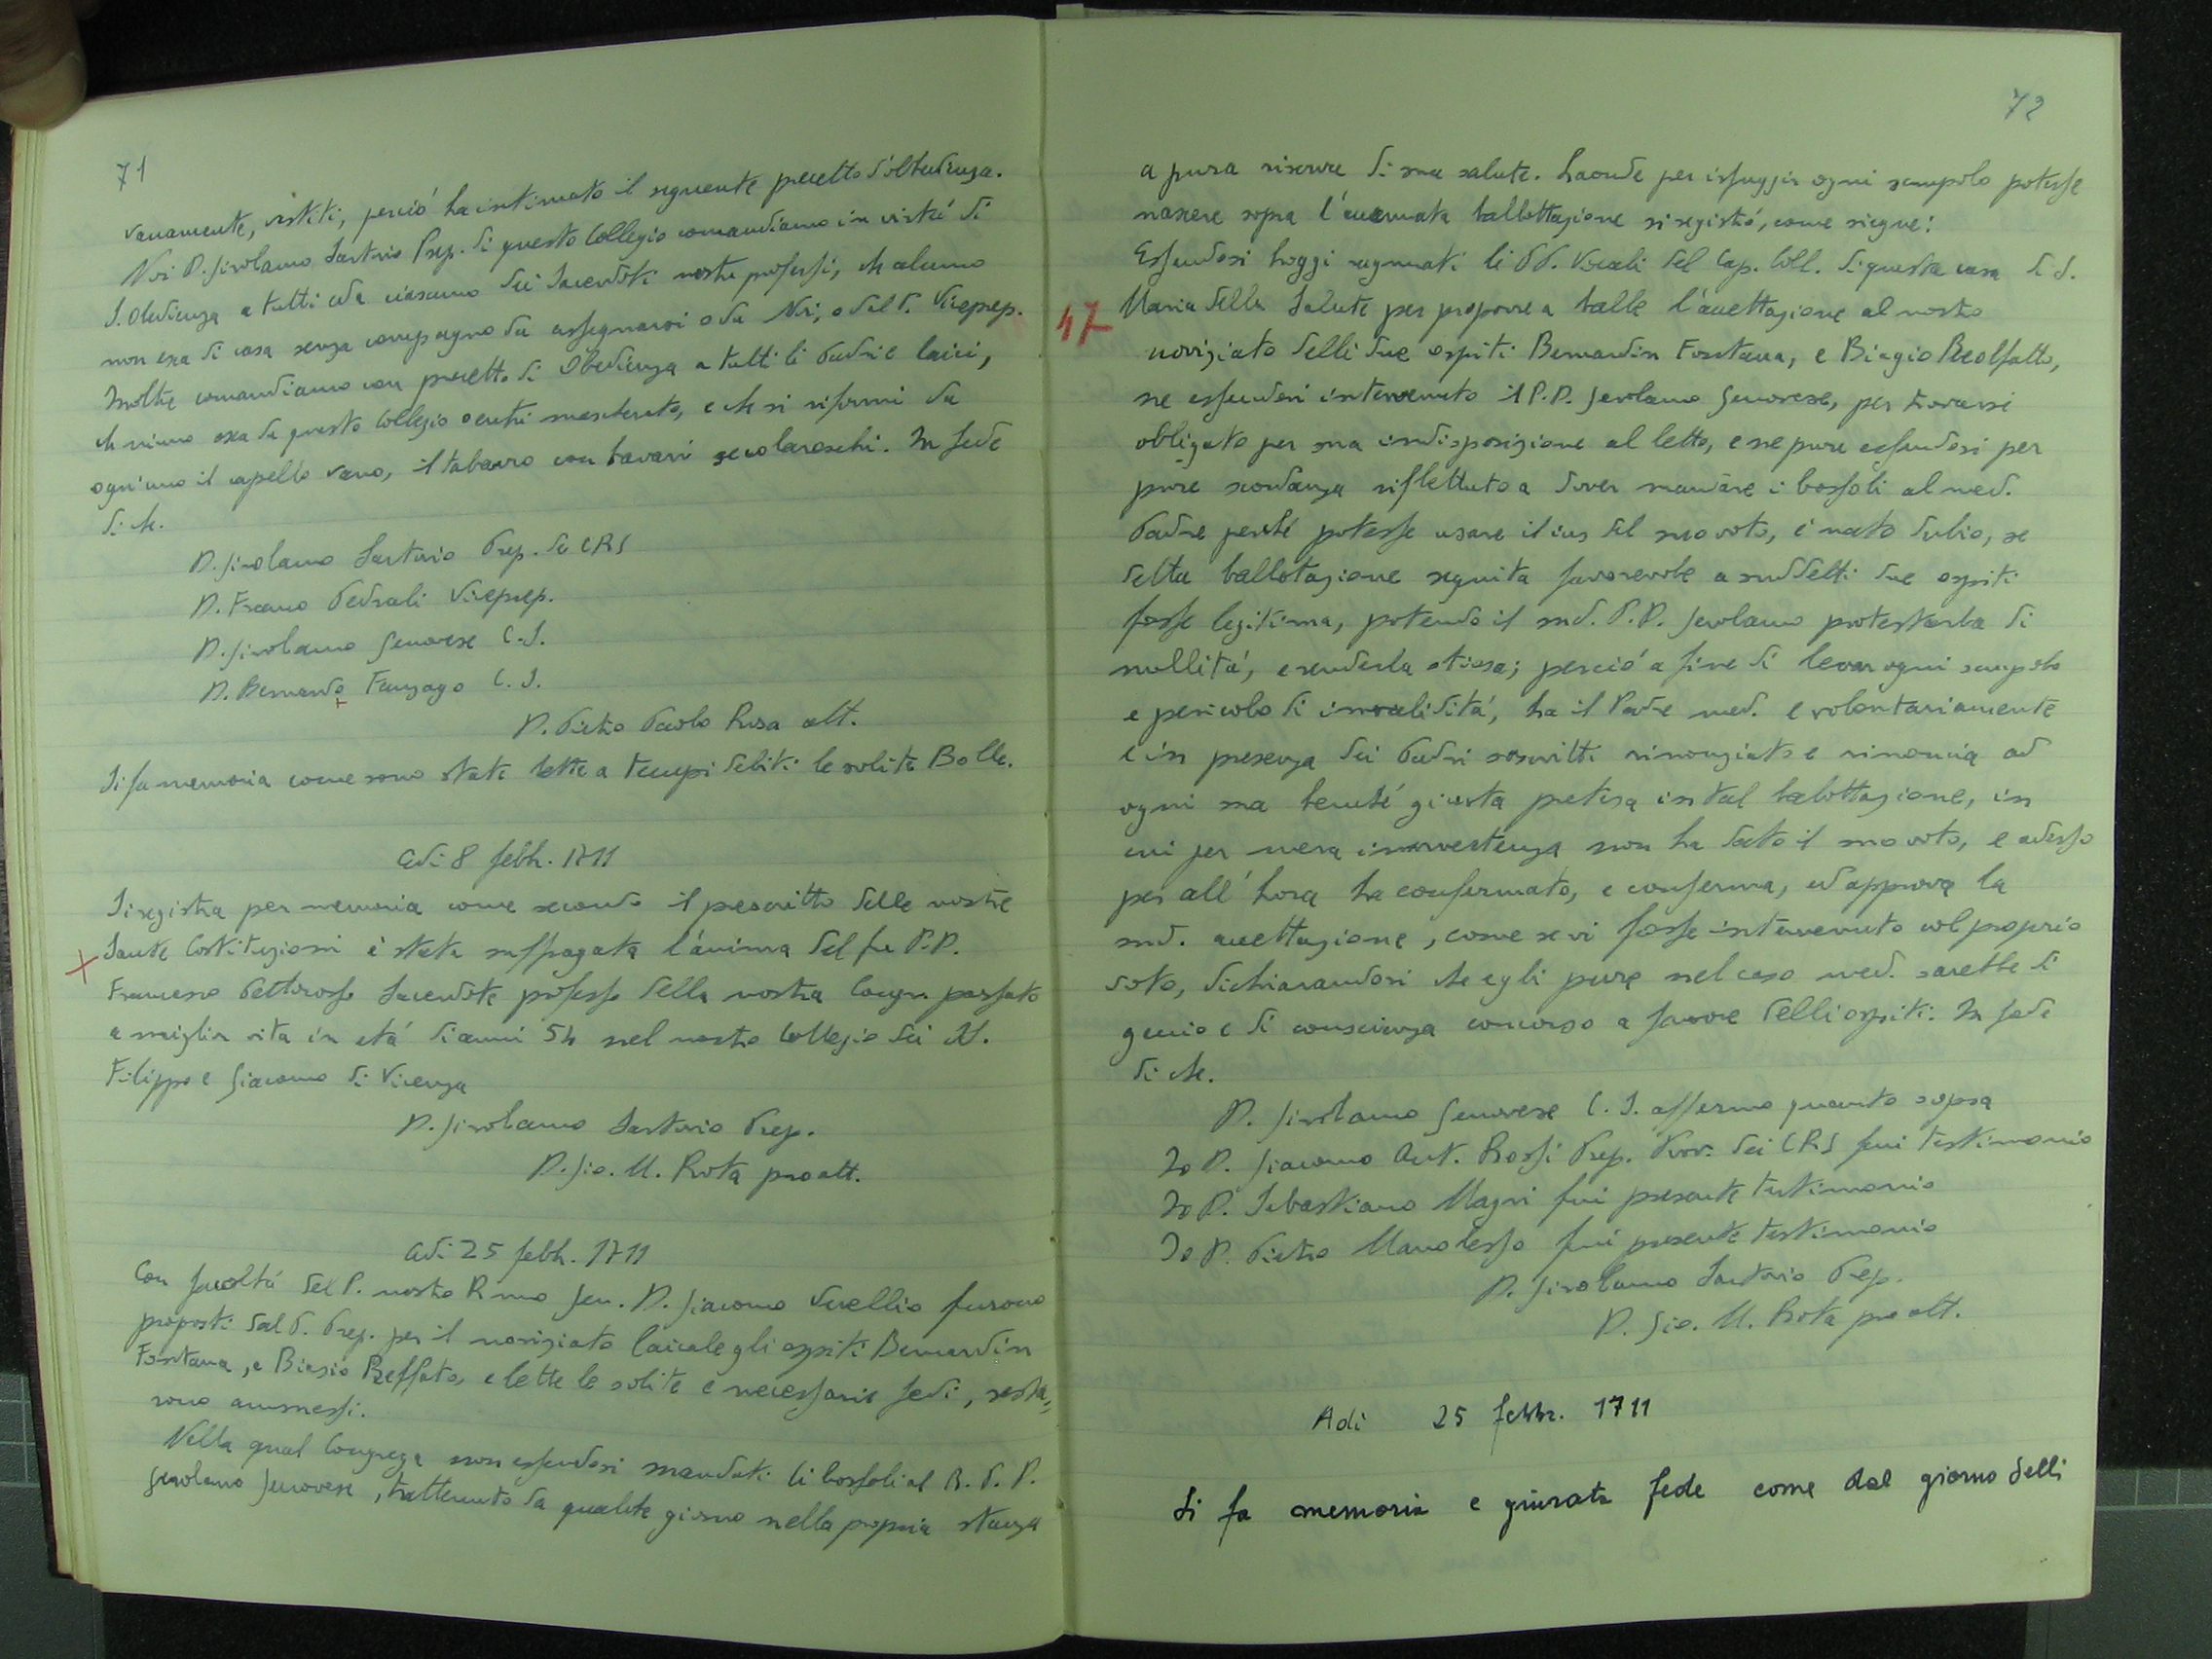 71
vanamente, vestiti, perciò ha intimato il seguente precetto d'obbedienza.
Noi D. Girolamo Sartorio Prep. di questo Collegio comandiamo in virtù di
S. Obedienza a tutti ed a ciascuno dei Sacerdoti nostri professi, che alcuno
non esca di casa senza compagno da assegnarsi o da Noi, o dal P. Viceprep.
Inoltre comandiamo con precetto di Obedienza a tutti li Padri e laici,
che niuno esca da questo Collegio o entri mascherato, e che si riformi da
ogn'uno il capello vano, il tabarro con bavari secolareschi. In fede
di che.
D. Girolamo Sartorio Prep. de CRS
D. Franco Pedrali Viceprep.
D. Girolamo Genovese C.S.
D. Bernardo Fenzago C.S.
D. Pietro Paolo Rosa att.
Si fa memoria come sono state lette a tempi debiti le solite Bolle.
Adi 8 febb. 1711
Si registra per memoria come secondo il prescritto delle nostre
Sante Costituzioni è stata suffragata l'anima del fu P.D.
Francesco Pettorosso Sacerdote professo della nostra Congr. passato
a miglior vita in età di anni 54 nel nostro Collegio dei SS.
Filippo e Giacomo di Vicenza
D. Girolamo Sartorio Prep.
D. Gio. M. Rota pro att.
Adi 25 febb. 1711
Con facoltà del P. nostro R.mo Gen. D. Giacomo Vecellio furono
proposti dal P. Prep. per il noviziato laicale gli ospiti Bernardin
Fontana, e Biasio Reffato, e lette le solite e necessarie fedi, resta=
rono ammessi.
Nella qual Congrega non essendosi mandati li bossoli al R. P. D.
Gerolamo Genovese, trattenuto da qualche giorno nella propria stanza
72
a pura riserva di sua salute. Laonde per isfuggir ogni scrupolo potesse
nascere sopra l'accennata ballottazione si registrò, come siegue:
Essendosi hoggi ragunati li PP. Vocali del Cap. Coll. di questa casa di S.
47 Maria della Salute per proporre a balle l'accettazione al nostro
noviziato delli due ospiti Bernardin Fontana, e Biagio Reolfatto,
ne essendosi intervenuto il P.D. Gerolamo Genovese, per trovarsi
obligato per sua indisposizione al letto, e ne pure essendosi per
pure scordanza riflettuto a dover mandare i bossoli al med.
Padre perché potesse usare il ius del suo voto, è nato dubio, se
detta ballotazione seguita favorevole a suddetti due ospiti
fosse legitima, potendo il sud. P.D. Gerolamo protestarla di
nullità, e renderla otiosa; perciò a fine di levar ogni scrupolo
e pericolo di invalidità, ha il Padre med. e volontariamente
e in presenza dei Padri soscritti rinonziato e rinoncia ad
ogni sua benché giusta pretesa in tal balottazione, in
cui per mera innavvertenza non ha dato il suo voto, e adesso
per all'hora ha confermato, e conferma, ed approva la
sud. accettazione, come se vi fosse intervenuto col proprio
voto, dichiarandosi che egli pure nel caso med. sarebbe di
genio e di conscienza concorso a favore delli ospiti. In fede
di che.
D. Girolamo Genovese C.S. affermo quanto sopra
Io D. Giacomo Ant. Rossi Prep. Prov. dei CRS fui testimonio
Io D. Sebastiano Magni fui presente testimonio
Io D. Pietro Manolesso fui presente testimonio
D. Girolamo Sartorio Prep.
D. Gio. M. Rota pro att.
Adi 25 febbr. 1711
Si fa memoria e giurata fede come dal giorno delli